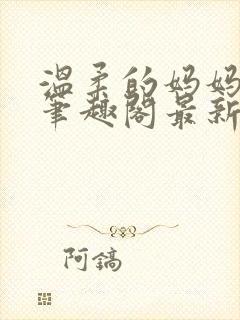 温柔的妈妈
笔趣阁最新
阿鎬